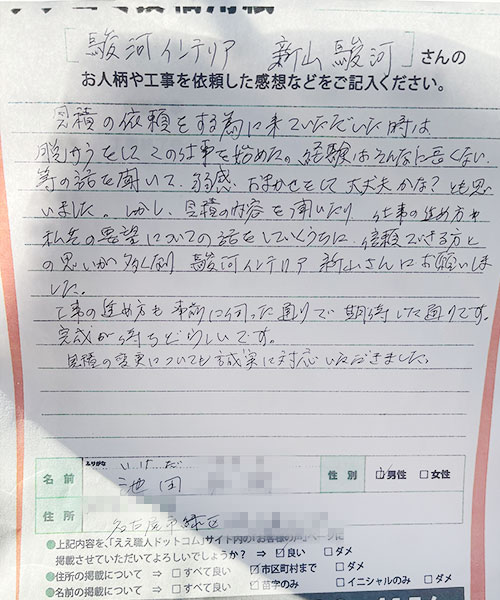 [駿河インテリア 新山 駿河]さんの
お人柄や工事を依頼した感想などをご記入ください。
見積の依頼をする為に来ていただいた時は
脱サラをしてこの仕事を始めたの、経験はそんなに長くない
等の話を聞いて、 おまかせをして大丈夫かな?とも思
いました。しかし、見積の内容を聞いたり、仕事の進め方や
私共の要望についての話をしていくうちに、信頼できる方と
の思いが 駿河インテリア 新山さんにお願いしま
した。
工事の進め方も事前に伺った通りで期待した通りです。
完成が待ちどうしいです。
見積の変更についても誠実に対応いただきました。
ふりがな いけだ
名前 池田
性別 ☑男性 □女性
住所 名古屋市緑区
●上記内容を、「ええ職人ドットコム」サイト内の「お客様の声」ページに
掲載させていただいてよろしいでしょうか? ⇒ ☑良い □ダメ
●住所の掲載について ⇒ □すべて良い ☑市区町村まで □ダメ
●名前の掲載について ⇒ □すべて良い ☑苗字のみ □イニシャルのみ □ダメ